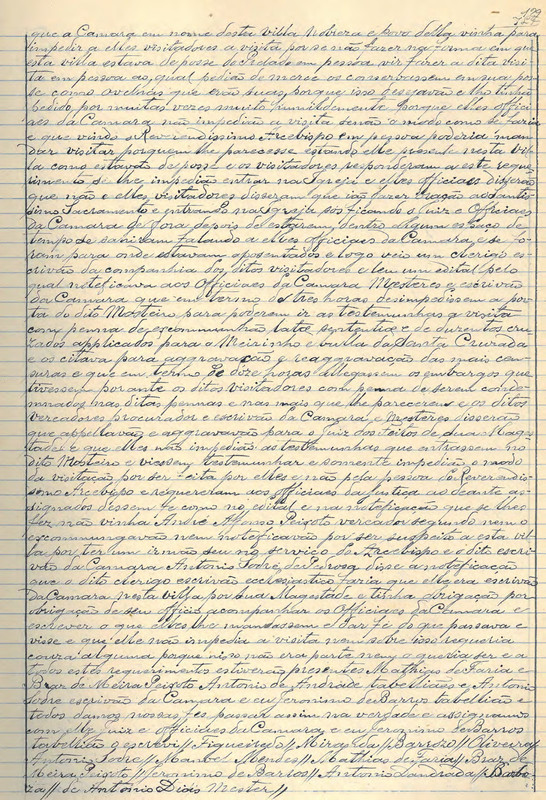 que a Camara em nome desta villa nobreza e povo della vinha para
impedir a elles visitadores a visita por se não fazer na forma em que
esta villa estava de posse de Prelado em pessoa vir fazer a dita visi
ta em pessoa ao qual pedião de mercê os conservassem em sua pos
se como ovelhas que erão suas, porque isso desejavão e lho tinhão
pedido por muitas vezes muito humildemente porque elles offici
aes da Camara não impedião a visita senão o modo como se fazia
e que vindo o Reverendissimo Arcebispo em pessoa poderia man
dar visitar por quem lhe parecesse estando elle presente nesta vil
la como estavão de posse e os visitadores responderam a este reque
rimento se lhe impedião entrar na Igreja e elles officiaes disserão
que não e elles visitadores disseram que ião fazer oração ao Santis
simo Sacramento e entrando na Igreja sós ficando o Juiz e Officiaes
da Camara de fora depois de estarem dentro algum espaço de
tempo se sahiram falando a elles officiaes da Camara, e se fo
ram para onde estavam aposentados e logo veio um clerigo es
crivão da companhia dos ditos visitadores e leu um edital pelo
qual noteficava aos Officiaes da Camara Mesteres e escrivão
da Camara que em termo de tres horas desimpedissem a por
ta do dito Mosteiro para poderem ir as testemunhas a visita
com penna de escommunhão lata sententia e de duzentos cru
zados applicados para o Meirinho e bulla da Santa Cruzada
e os citava para aggravação e reaggravação das mais cen
suras e que em termo de doze horas allegassem os embargos que
tivessem por ante os ditos visitadores com pena de serem conde
mnados nas ditas pennas e nas mais que lhe parecerem e os ditos
vereadores procurador e escrivão da Camara e Mesteres disserão
que appellavão e aggravavão para o Juiz dos feitos de sua Mages
tade e que elles não impedião as testemunhas que entrassem no
dito Mosteiro e viessem testemunhar e somente impedião o modo
da visitação por ser feita por elles e não pela pessoa do Reverendis
simo Arcebispo e requereram aos officiaes da justiça ao deante as
signados dessem fé como no edital e na noteficação que se lhes
fez não vinha André Affonso Peixoto vereador segundo nem o
escommungavão nem noteficavão por ser suspeito a esta vil
la por ter um irmão seu no serviço do Arcebispo e o dito escri
vão da Camara Antonio Sodré de Pedrosa disse a noteficação
que o dito clerigo escrivão ecclesiastico faria que elle era escrivão
da Camara nesta villa por sua Magestade e tinha obrigação por
obrigação de seu officio acompanhar os Officiaes da Camara e
escrever o que elles lhe mandassem e dar fé do que passava e
visse e que elle não impedia a visita nem sobre isso requeria
couza alguma porque nisso não era parte nem o queria ser e a
todos estes requerimentos estiverão presentes Mathias de Faria e
Braz de Meira Peixoto Antonio de Andrade tabelliães e Antonio
Sodre escrivão da Camara e eu Jeronimo de Barros tabellião e
todos damos nossas fés passar assim na verdade e assignamos
com elle juiz e officiaes da Camara, e eu Jeronimo de Barros
tabellião o escrevi // Figueiredo // Miranda // Barrozo // Oliveira //
Antonio Sodre // Manoel Mendes // Mathias de Faria // Braz de
Meira Peixoto // Jeronimo de Barros // Antonio d'Andrada // Barbo
za // de Antonio Dias Mester //